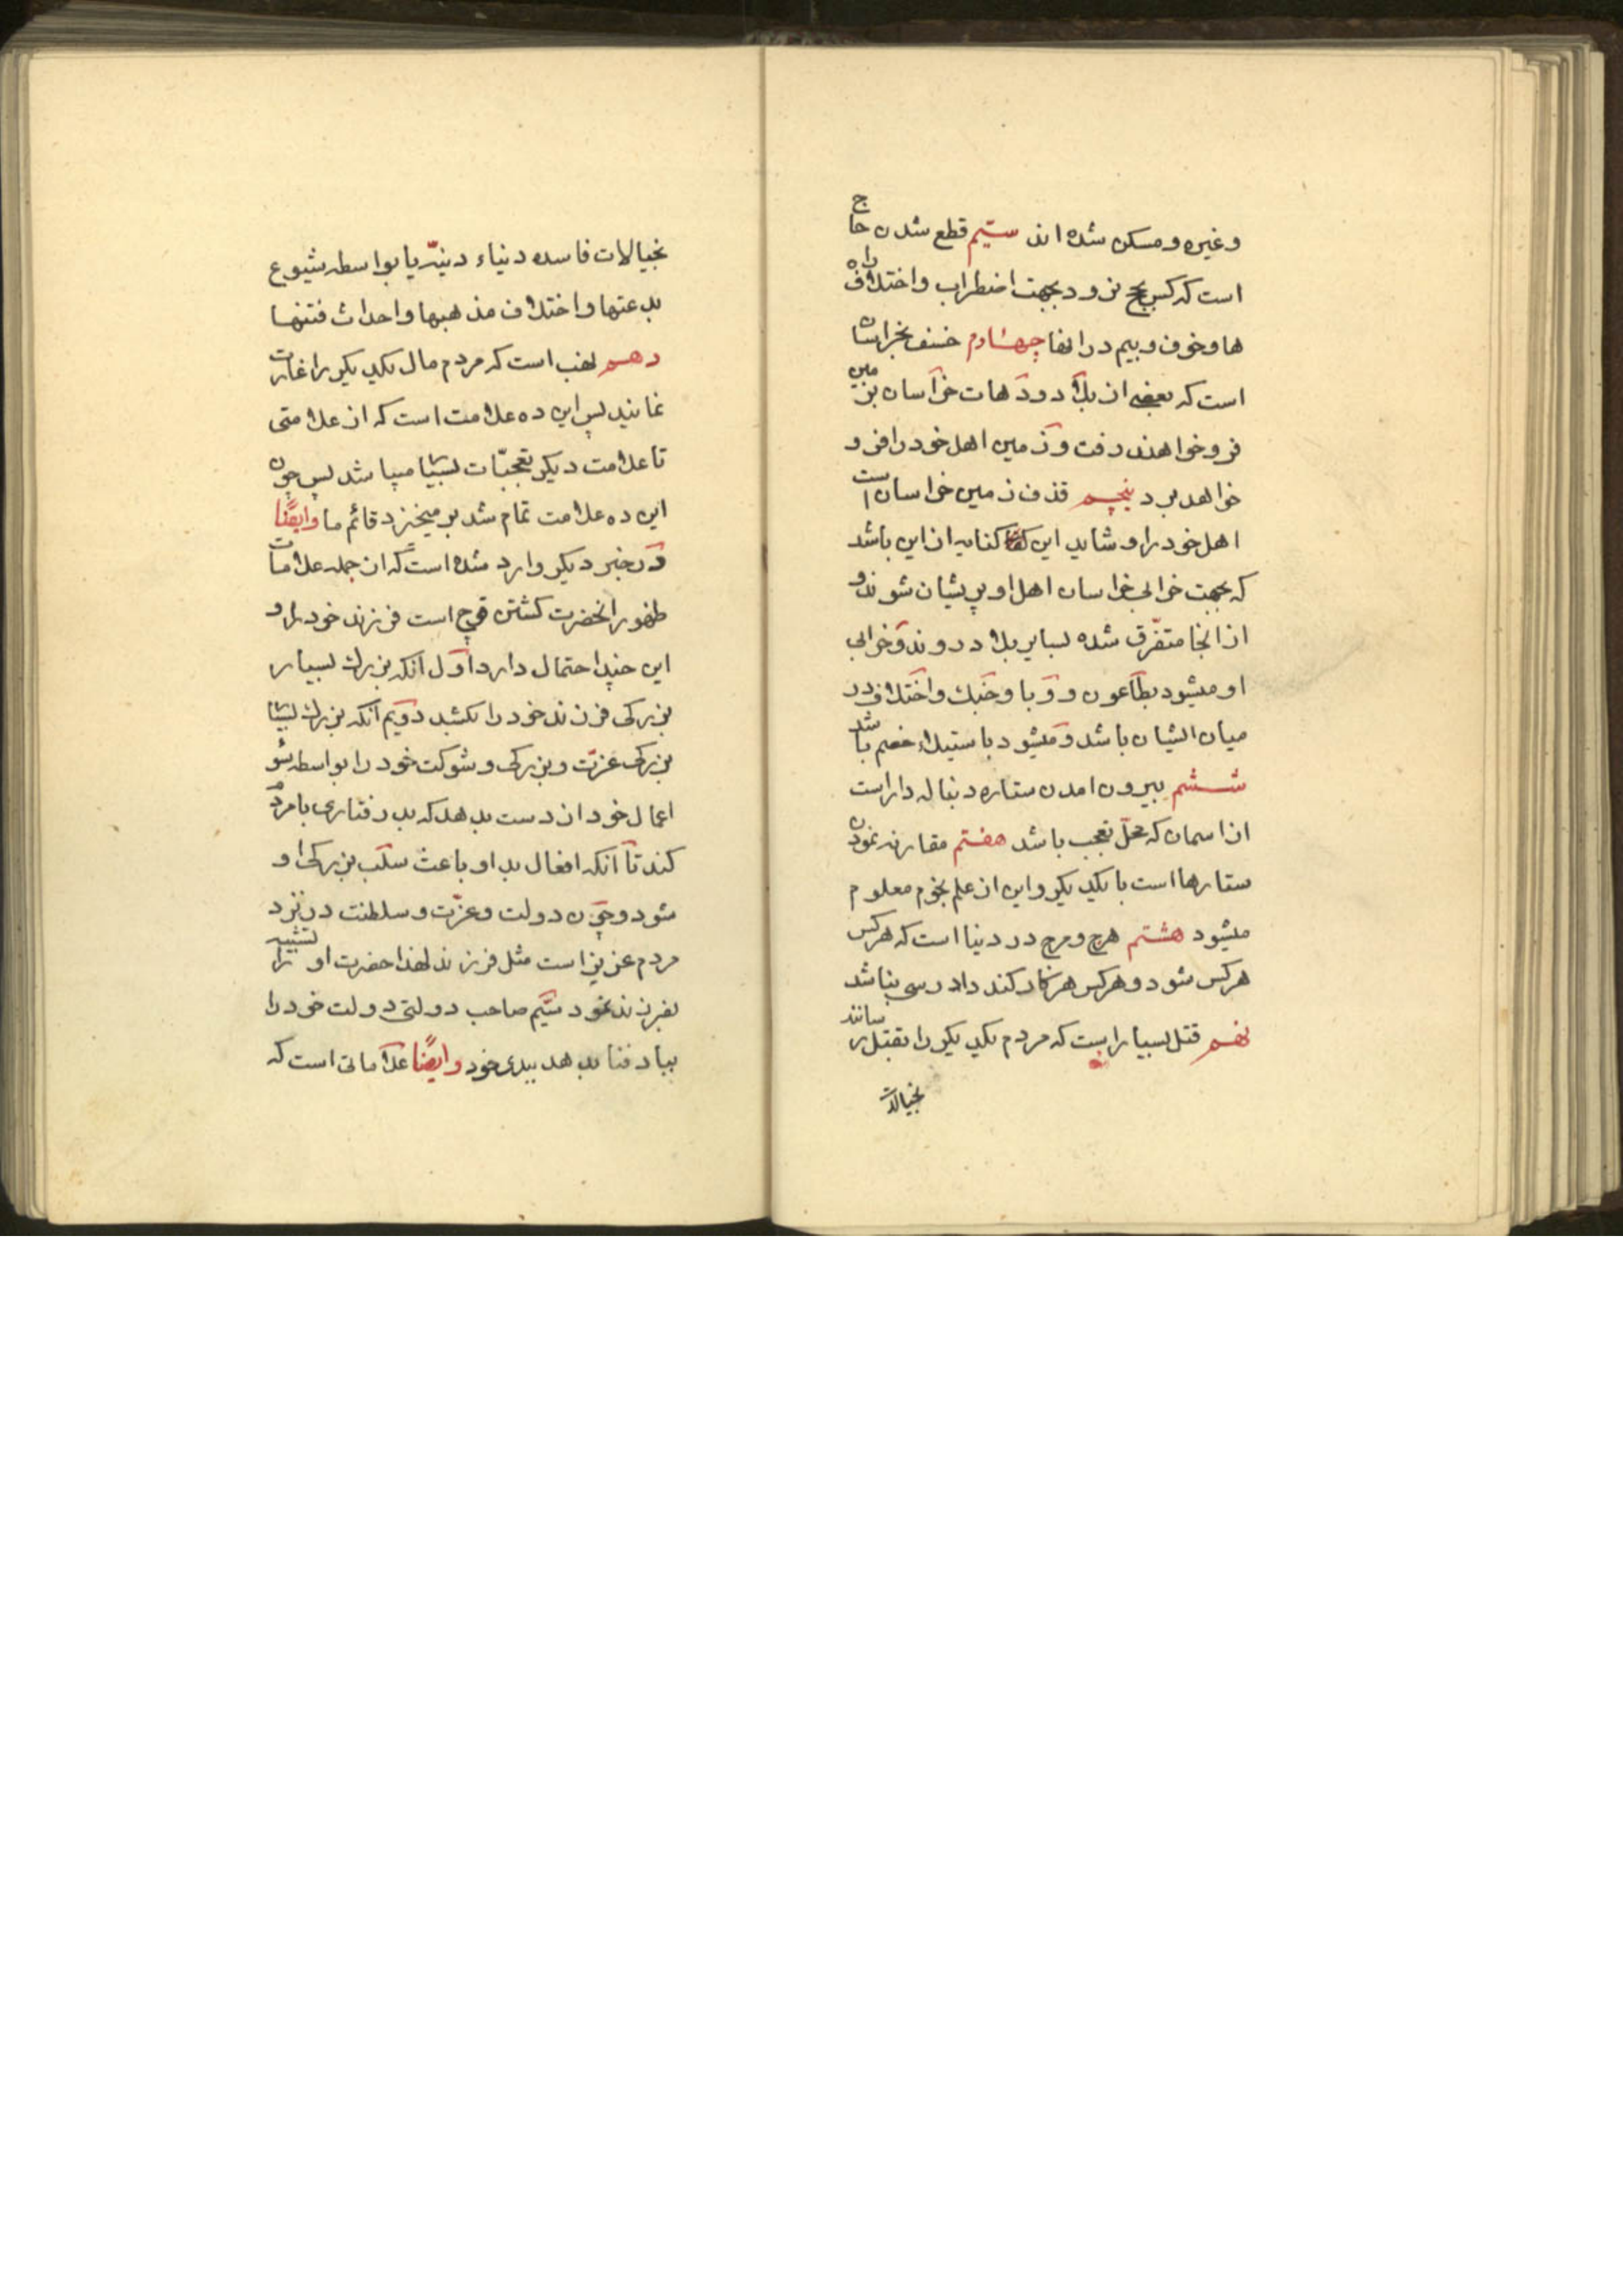 وغیره و مسکن شده اند سیّم قطع شدن حاج
است که کس بحج نرود بجهت اضطراب و اختلاف راه
ها و خوف و بیم در انها چهارم خسف بخراسان
است که بعضی از بلاد و دهات خراسان بزمین
فرو خواهند رفت و زمین اهل خود را فرو
خواهد برد پنجم قذف زمین خراسان است
اهل خود را و شاید این کنایه از این باشد
که بجهت خرابی خراسان اهل او پریشان شوند و
از انجا متفرّق شده بسایر بلاد روند و خرابی
او میشود بطاعون و وبا و جنک و اختلاف در
میان ایشان باشد و میشود باستیلاء خصم باشد
ششم بیرون امدن ستاره دنباله دار است
از اسمان که محلّ تعجب باشد هفتم مقارنه نمودن
ستارها است با یکدیکر و این از علم نجوم معلوم
میشود هشتم هرج و مرج در دنیا است که هر کس
هر کس شود و هر کس هر کار کند دادرسی نباشد
نهم قتل بسیار است که مردم یکدیکر را بقتل رسانند
بخیالات
بخیالات فاسده دنیاء دنیّه یا بواسطه شیوع
بدعتها و اختلاف مذهبها و احداث فتنها
دهم نهب است که مردم مال یکدیکر را غارت
نمایند پس این ده علامت است که از علامتی
تا علامت دیکر تعجّبات بسیار میباشد پس چون
این ده علامت تمام شد بر میخیزد قائم ما وایضًا
در خبر دیکر وارد شده است که از جمله علامات
ظهور انحضرت کشتن قوچ است فرزند خود را و
این چند احتمال دارد اوّل آنکه بزرك بسیار
بزرکی فرزند خود را بکشد دویّم آنکه بزرك بسیار
بزرکی عزّت و بزرکی و شوکت خود را بواسطه سوء
اعمال خود از دست بدهد که بد رفتاری با مردم
کند تا آنکه افعال بد او باعث سلب بزرکی او
شود و چون دولت و عزّت و سلطنت در نزد
مردم عزیز است مثل فرزند لهذا حضرت او را تشبیه
بفرزند نمود سیّم صاحب دولتی دولت خود را
بباد فنا بدهد بیدی خود وایضًا علاماتی است که